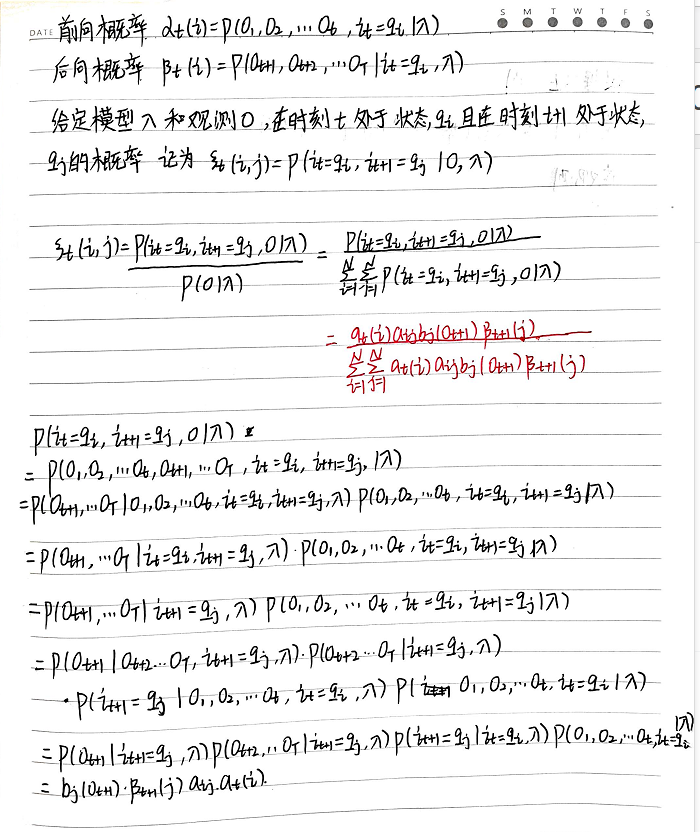 DATE S M T W T F S
前向概率 αt(i)=P(O1,O2,…Ot,it=qi|λ)
后向概率 βt(i)=P(Ot+1,Ot+2,…OT|it=qi,λ)
给定模型λ和观测O,在时刻t处于状态,qi且在时刻t+1处于状态,
qj的概率 记为 ξt(i,j)=P(it=qi,it+1=qj|O,λ)
ξt(i,j)=P(it=qi,it+1=qj,O|λ)/P(O|λ) = P(it=qi,it+1=qj,O|λ)/∑i=1N∑j=1N P(it=qi,it+1=qj,O|λ)
= at(i)aijbj(Ot+1)βt+1(j)/∑i=1N∑j=1N at(i)aijbj(Ot+1)βt+1(j)
P(it=qi,it+1=qj,O|λ)
= P(O1,O2,…Ot,Ot+1,…OT,it=qi,it+1=qj,|λ)
=P(Ot+1,…OT|O1,O2,…Ot,it=qi,it+1=qj,λ)P(O1,O2,…Ot,it=qi,it+1=qj|λ)
=P(Ot+1,…OT|it=qi,it+1=qj,λ)·P(O1,O2,…Ot,it=qi,it+1=qj|λ)
=P(Ot+1,…OT|it+1=qj,λ)P(O1,O2,…Ot,it=qi,it+1=qj|λ)
=P(Ot+1|Ot+2…OT,it+1=qj,λ)·P(Ot+2…OT|it+1=qj,λ)
·P(it+1=qj|O1,O2,…Ot,it=qi,λ)P(O1,O2,…Ot,it=qi|λ)
=P(Ot+1|it+1=qj,λ)P(Ot+2,…OT|it+1=qj,λ)P(it+1=qj|it=qi,λ)P(O1,O2,…Ot,it=qi|λ)
= bj(Ot+1)·βt+1(j)aij.at(i).